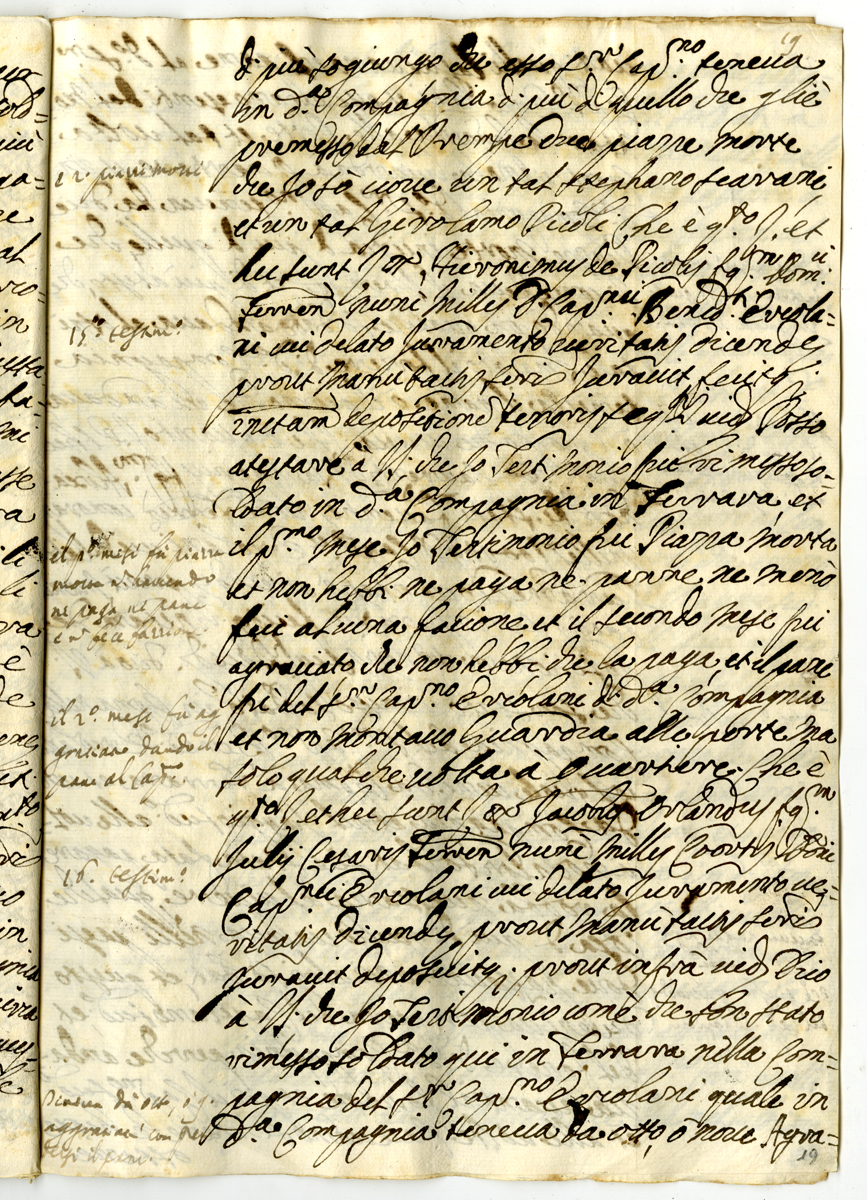 19
di più sogiungo che esso S.r Cap.no teneua
in d.a Compagnia di più di quello che gliè
premesso dal Prempe due piazze morte
che Io sò cioue un tal Stephano Scarani,
et un tal Girolamo Picoli Che è q.to J. et
hec sunt J
Hieronimus de Picolis
Ferren nunc Milles D. Cap.nei Bened.ti Ercola=
ni cui delato Juramento ueritatis dicende
prout manu tactis Juravit fecitq.
depositione tenoris Posso
atestare à V.S. che Io Testimonio fui rimesso so=
ldato in d.a Compagnia in Ferrara, et
il p.mo Mese Io Testimonio fui Piazza morta
et non hebbi ne paga ne panne, ne meno
feci alcuna facione et il secondo Mese fui
agraciato che non hebbi che la paga, et il pane
fù del S.r Cap.no Ercolani di d.a Compagnia
et non montauo Guardia alle porte ma
solo qualche uolta à Quartiere. Che è
q.to J et hec sunt J Jacobus Orlandus
Julij Cesaris Ferren nunc Milles Coortis
Cap.nei Ercolani cui delato Juramento ue=
ritatis dicende, prout Manu tactis
Jurauit deposuitq. prout infra Dico
à V.S. che Io Testimonio come che son stato
rimesso soldato qui in Ferrara nella Com=
pagnia del S.r Cap.no Ercolani quale in
d.a Compagnia teneua da otto, ò noue Agra=
19
15.o testim.o
il p.o mese fù piazza
morta nò hauendo
ne paga ne pane
il 2.o mese fù ag
graciato dando il
pane al Cap.o
16. testim.o